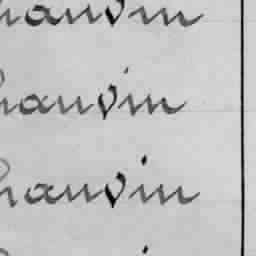 hauvin
hauvin
hauvin